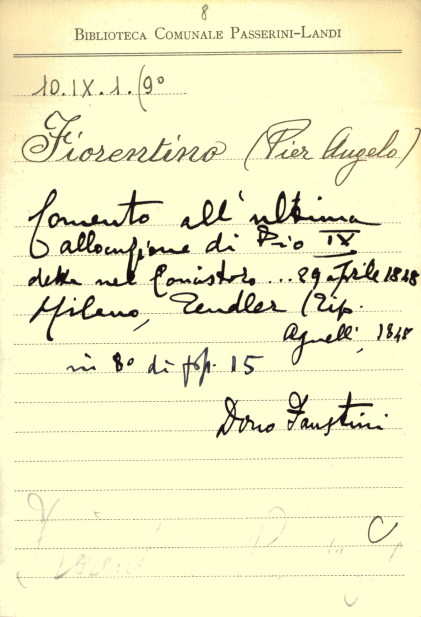 8
BIBLIOTECA COMUNALE PASSERINI-LANDI
10.IX.1.(9°
Fiorentino (Pier Angelo)
Comento all'ultima
allocuzione di Pio IX
detta nel Concistoro ... 29 aprile 1848
Milano, Tendler (Tip.
Agnelli, 1848
in 8° di pp. 15
Dono Faustini
C